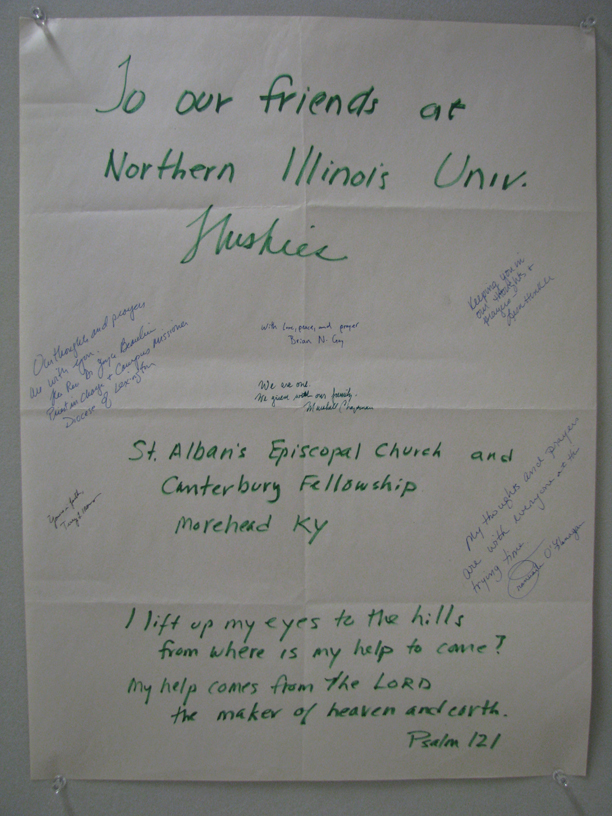 To our friends at
Northern Illinois Univ.
Huskies
Keeping you in
our thoughts &
prayers
Our thoughts and prayers
are with you.
The Rev. Dr.
Priest in Charge & Campus Missioner
Diocese of Lexington
With love, peace, and prayer
Brian N.
We are one.
We grieve with our family.
Marshall Chapman
St. Alban's Episcopal Church and
Canterbury Fellowship
Morehead KY
My thoughts and prayers
are with everyone at this
trying time
I lift up my eyes to the hills
from where is my help to come?
My help comes from The LORD
the maker of heaven and earth.
Psalm 121